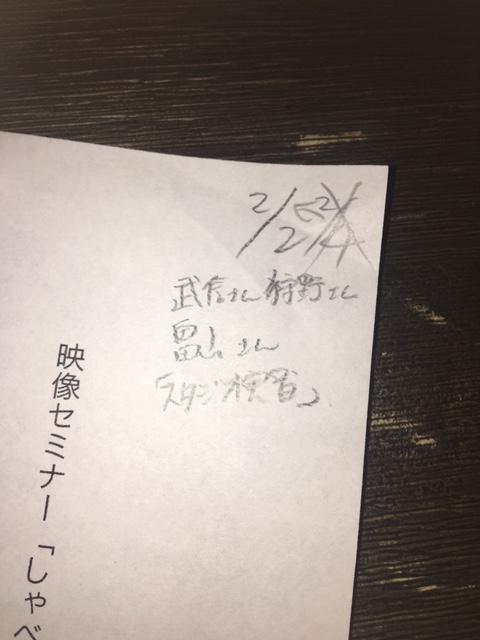 2/2
武信さん 狩野さん
畠山さん
「スタジオ演習」
映像セミナー「しゃべ